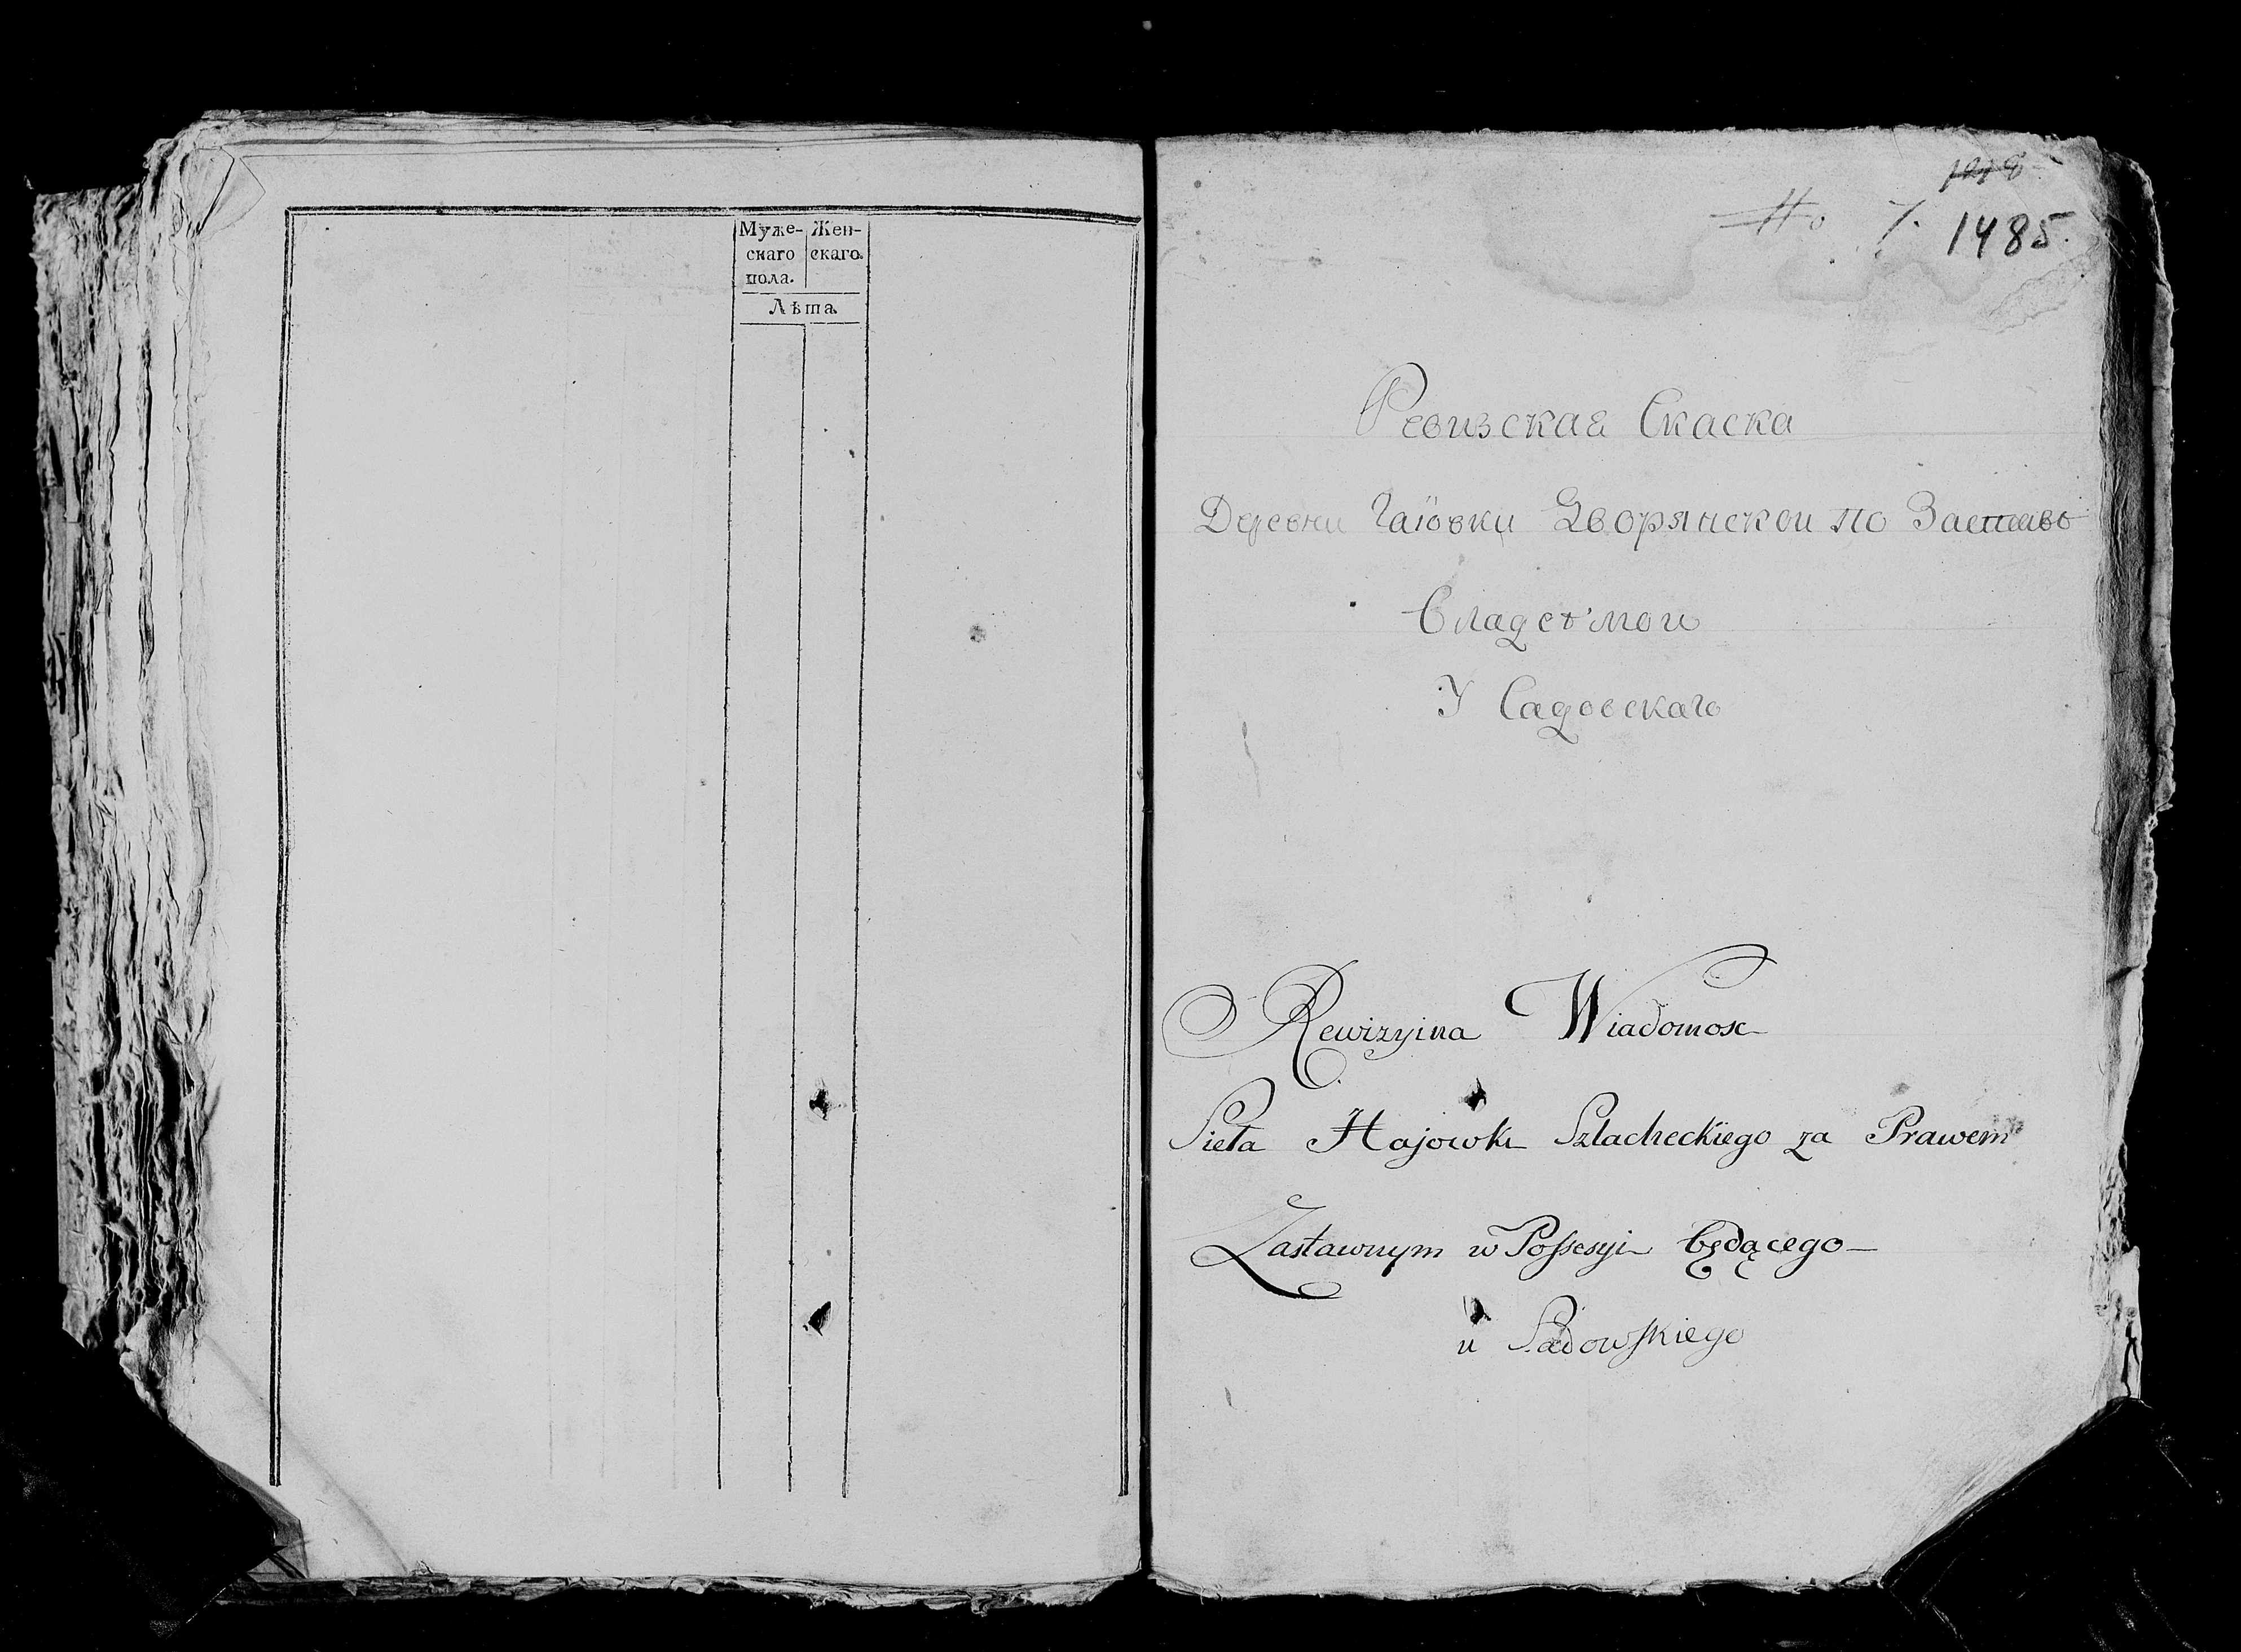 Муже- Жен-
скаго скаго.
пола.
Лѣта.
1485.
№ 7.
Ревизская Скаска
Деревни Гаiовки Дворянской по Заставѣ
Владетмои
У Садовскаго
Rewizyina Wiadomosc
Sieła Hajowki Szlacheckiego za Prawem
Zastawnym w Possesyi będącego
u Sadowskiego